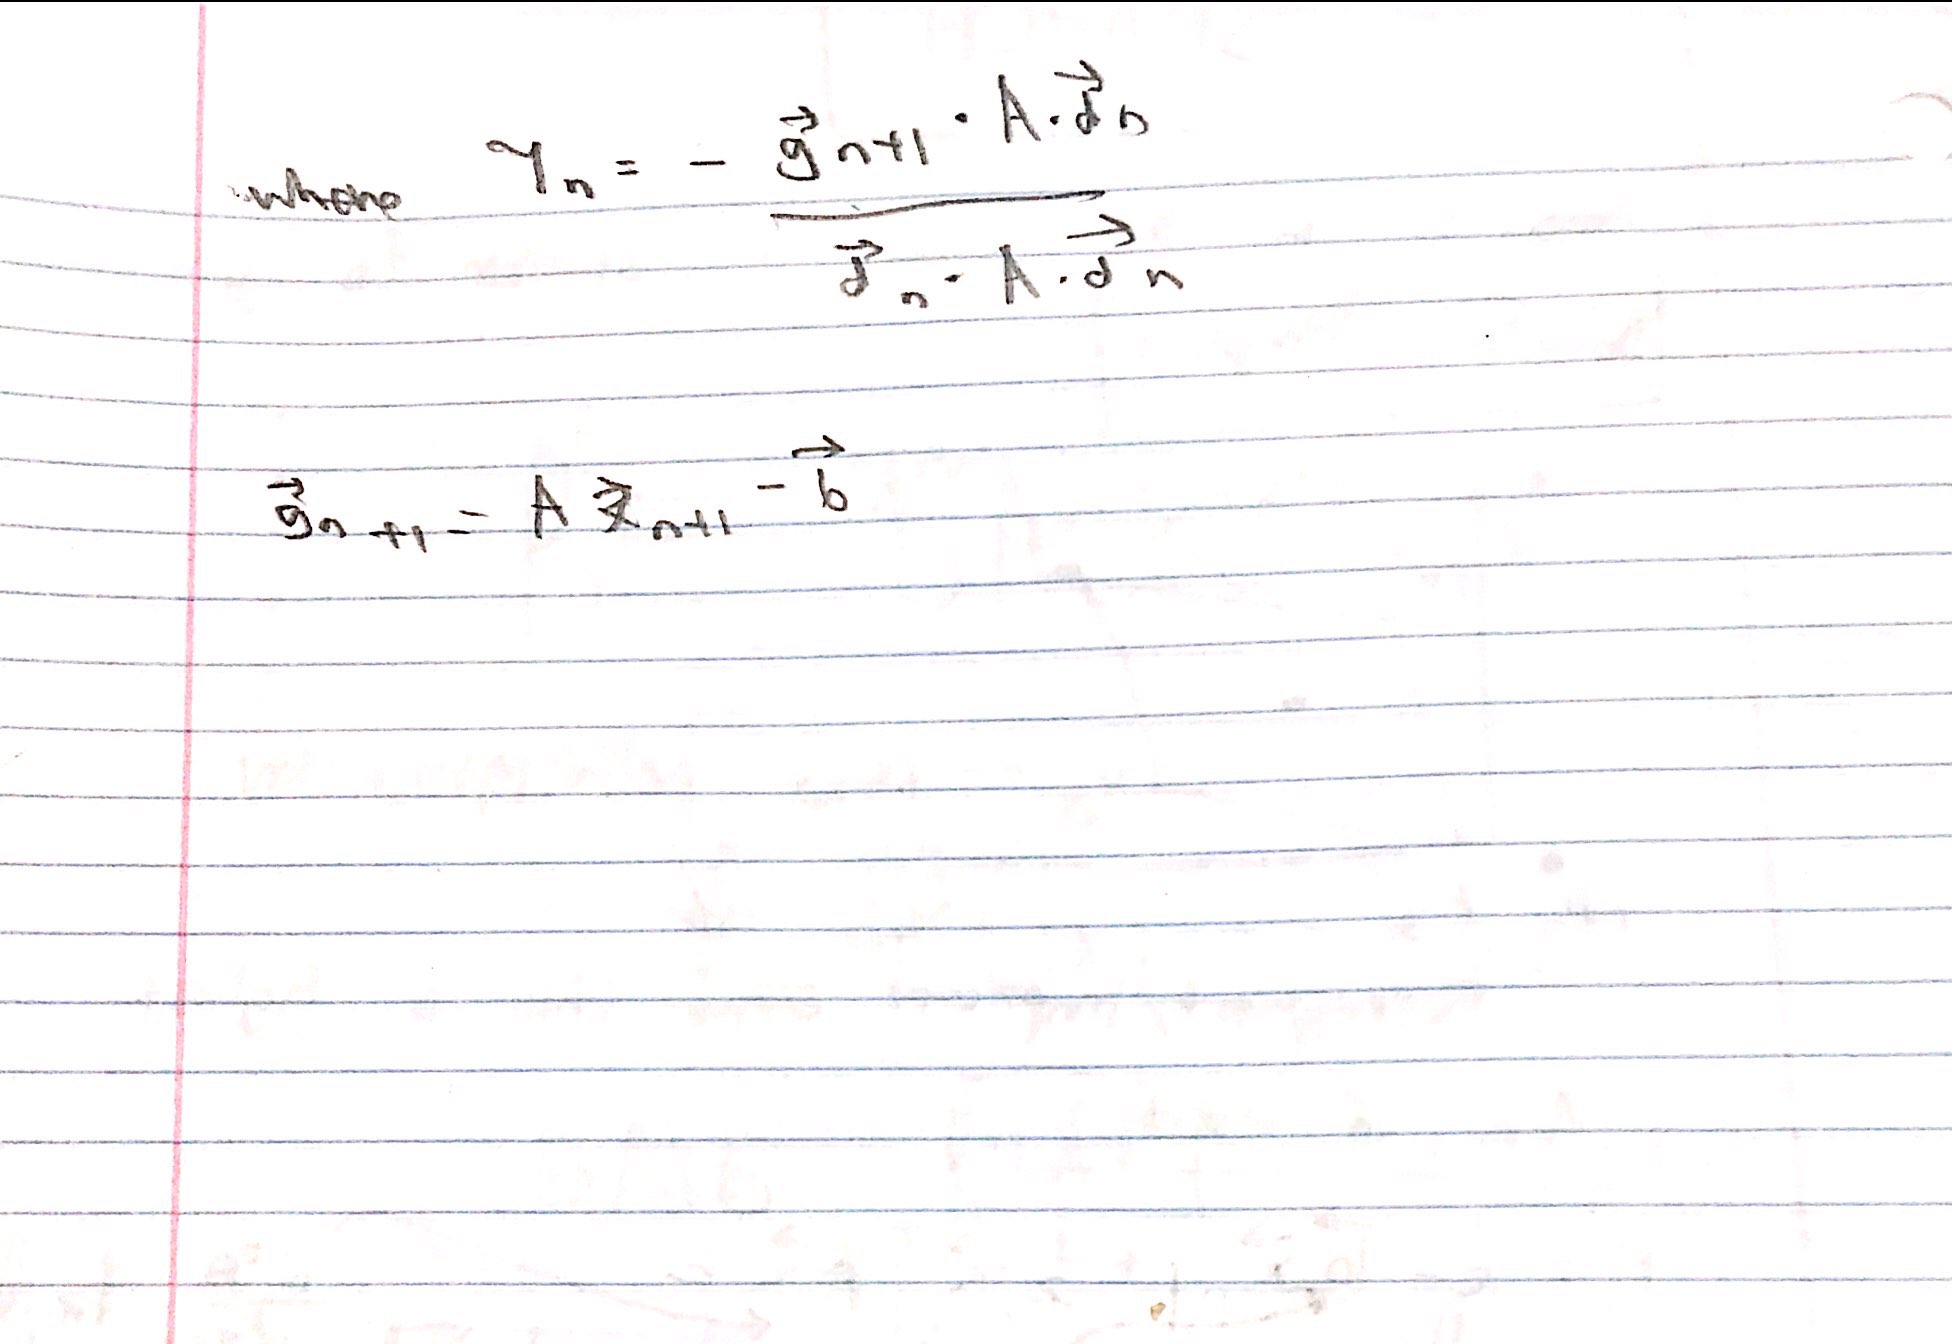 where γₙ = - g⃗ₙ₊₁ · A · d⃗ₙ / d⃗ₙ · A · d⃗ₙ
g⃗ₙ₊₁ = A x⃗ₙ₊₁ - b⃗